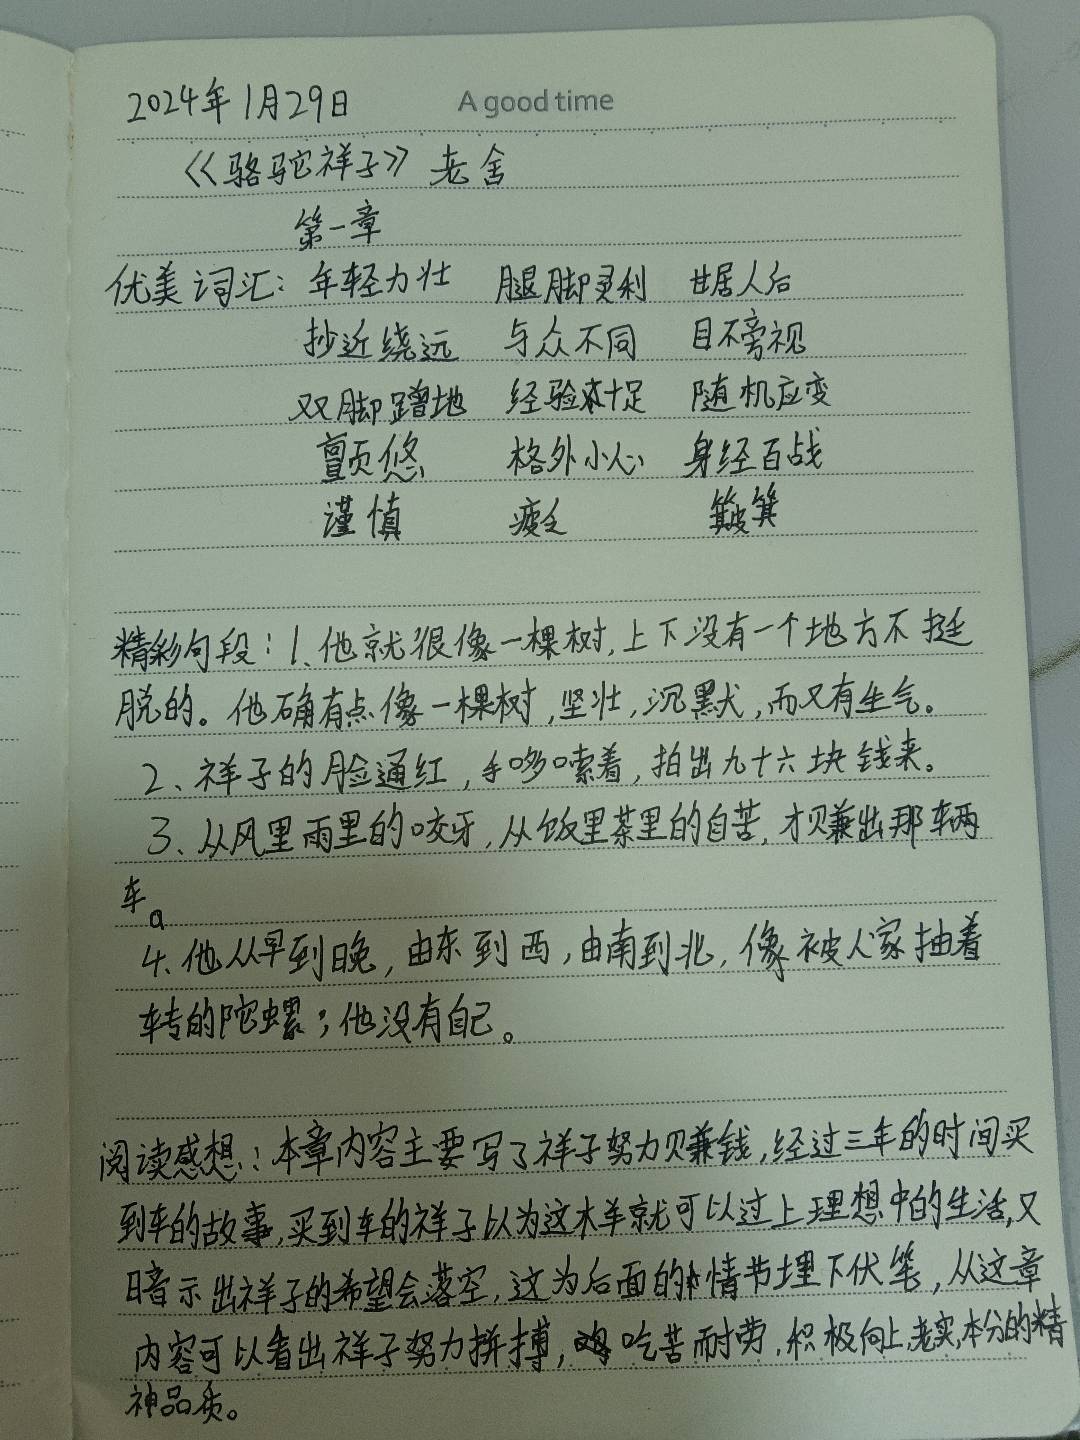 2024年1月29日 A good time
《骆驼祥子》老舍
第一章
优美词汇：年轻力壮 腿脚灵利 甘居人后
抄近绕远 与众不同 目不旁视
双脚蹭地 经验十足 随机应变
颤悠 格外小心 身经百战
谨慎 疲乏 簸箕
精彩句段：1、他就很像一棵树，上下没有一个地方不挺
脱的。他确有点像一棵树，坚壮，沉默，而又有生气。
2、祥子的脸通红，手哆嗦着，拍出九十六块钱来。
3、从风里雨里的咬牙，从饭里茶里的自苦，才赚出那辆
车。
4、他从早到晚，由东到西，由南到北，像被人家抽着
转的陀螺；他没有自己。
阅读感想：本章内容主要写了祥子努力赚钱，经过三年的时间买
到车的故事，买到车的祥子以为这样就可以过上理想中的生活，又
暗示出祥子的希望会落空，这为后面的情节埋下伏笔，从这章
内容可以看出祥子努力拼搏，吃苦耐劳，积极向上，老实，本分的精
神品质。